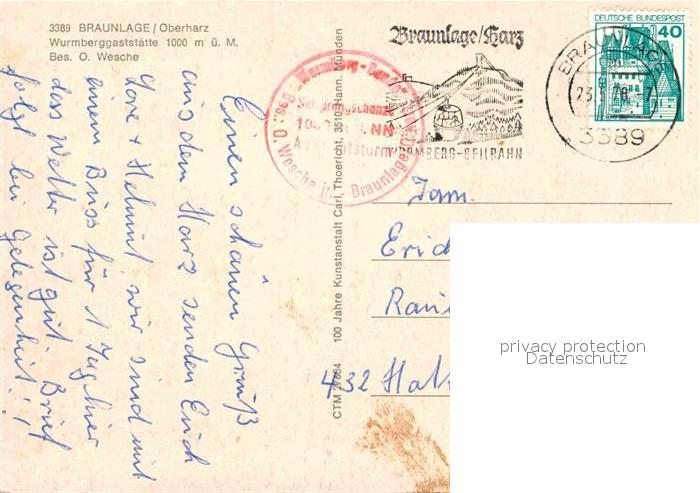 3389 BRAUNLAGE/Oberharz
Wurmberggaststätte 1000 m ü. M.
Bes. O. Wesche
Einen schönen Gruß
aus dem Harz senden Euch
Lore + Helmut, wir sind mit
einem Buss für 1 Tag hier
das Wetter ist gut. Brief
folgt bei Gelegenheit!!
CTM 100 Jahre Kunstanstalt Carl Thoericht, 3510 Hann. Münden
Bes. O. Wesche Braunlage
Braunlage/Harz
WURMBERG-SEILBAHN
DEUTSCHE BUNDESPOST
40
BRAUNLAGE
3389
Fam.
Eric
432 Hat
privacy protection
Datenschutz